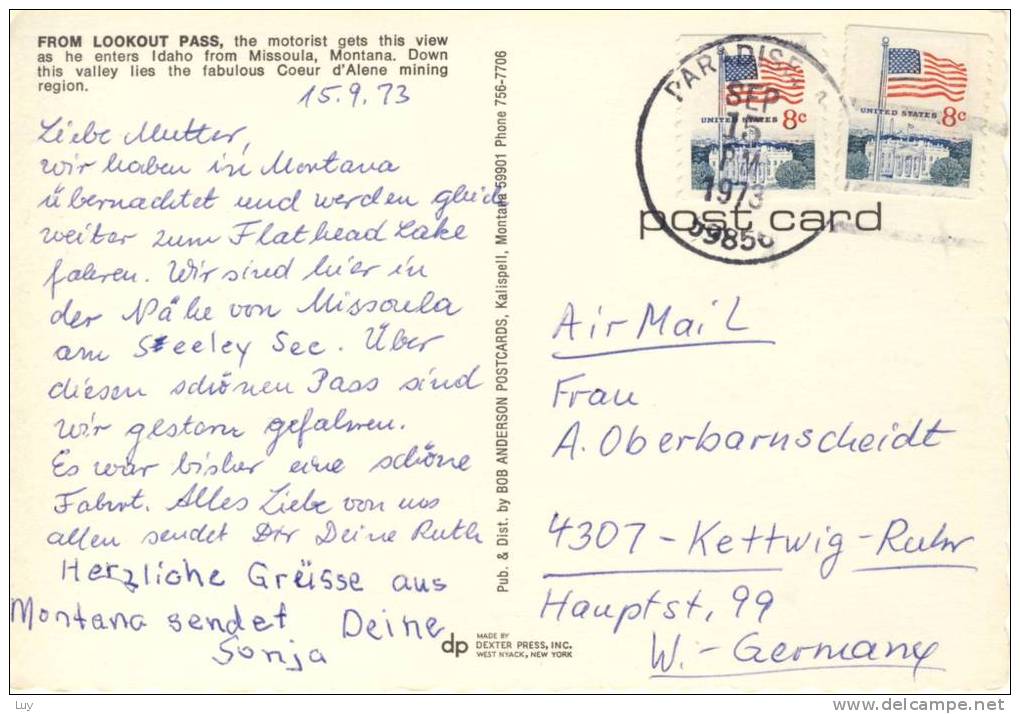 FROM LOOKOUT PASS, the motorist gets this view
as he enters Idaho from Missoula, Montana. Down
this valley lies the fabulous Coeur d'Alene mining
region.
15.9.73
Liebe Mutter,
wir haben in Montana
übernachtet und werden gleich
weiter zum Flathead Lake
fahren. Wir sind hier in
der Nähe von Missoula
am Seeley See. Über
diesen schönen Pass sind
wir gestern gefahren.
Es war bisher eine schöne
Fahrt. Alles Liebe von uns
allen sendet Dir Deine Ruth
Herzliche Grüsse aus
Montana sendet Deine
Sonja
Pub. & Dist. by BOB ANDERSON POSTCARDS, Kalispell, Montana 59901 Phone 756-7706
dp
MADE BY
DEXTER PRESS, INC.
WEST NYACK, NEW YORK
PARADISE
SEP
15
PM
1973
59856
UNITED STATES 8c
UNITED STATES 8c
post card
Air Mail
Frau
A. Oberbarnscheidt
4307-Kettwig-Ruhr
Hauptst. 99
W.-Germany
Luy
delcampe.net